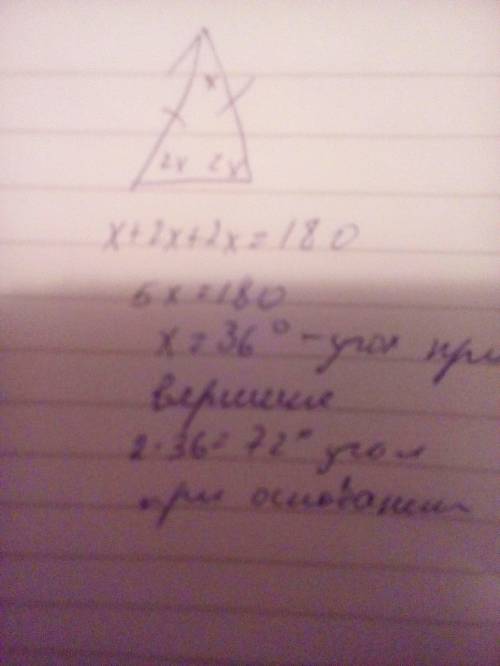 x
2x 2x
x+2x+2x=180
5x=180
x=36° - угол при
вершине
2·36=72° угол
при основании